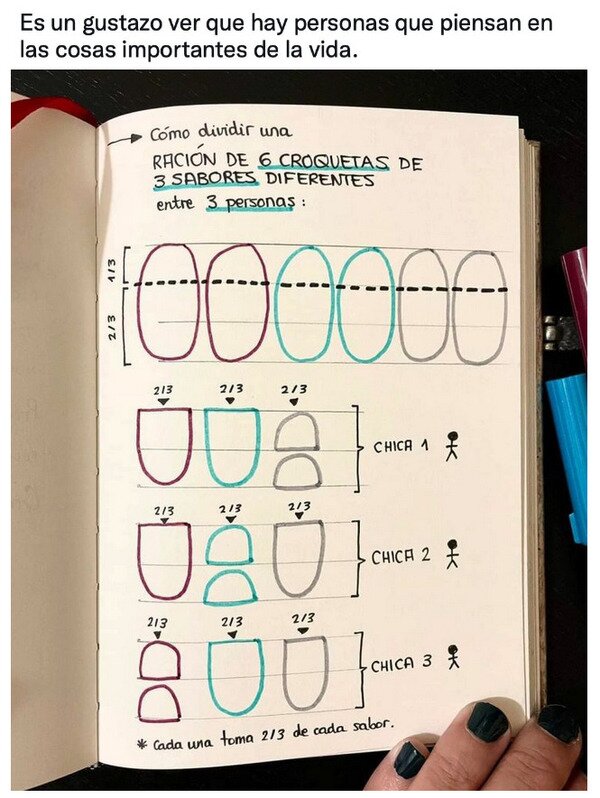 Es un gustazo ver que hay personas que piensan en
las cosas importantes de la vida.
Cómo dividir una
RACIÓN DE 6 CROQUETAS DE
3 SABORES DIFERENTES
entre 3 personas:
1/3
2/3
2/3 2/3 2/3
CHICA 1
2/3 2/3 2/3
CHICA 2
2/3 2/3 2/3
CHICA 3
* Cada una toma 2/3 de cada sabor.